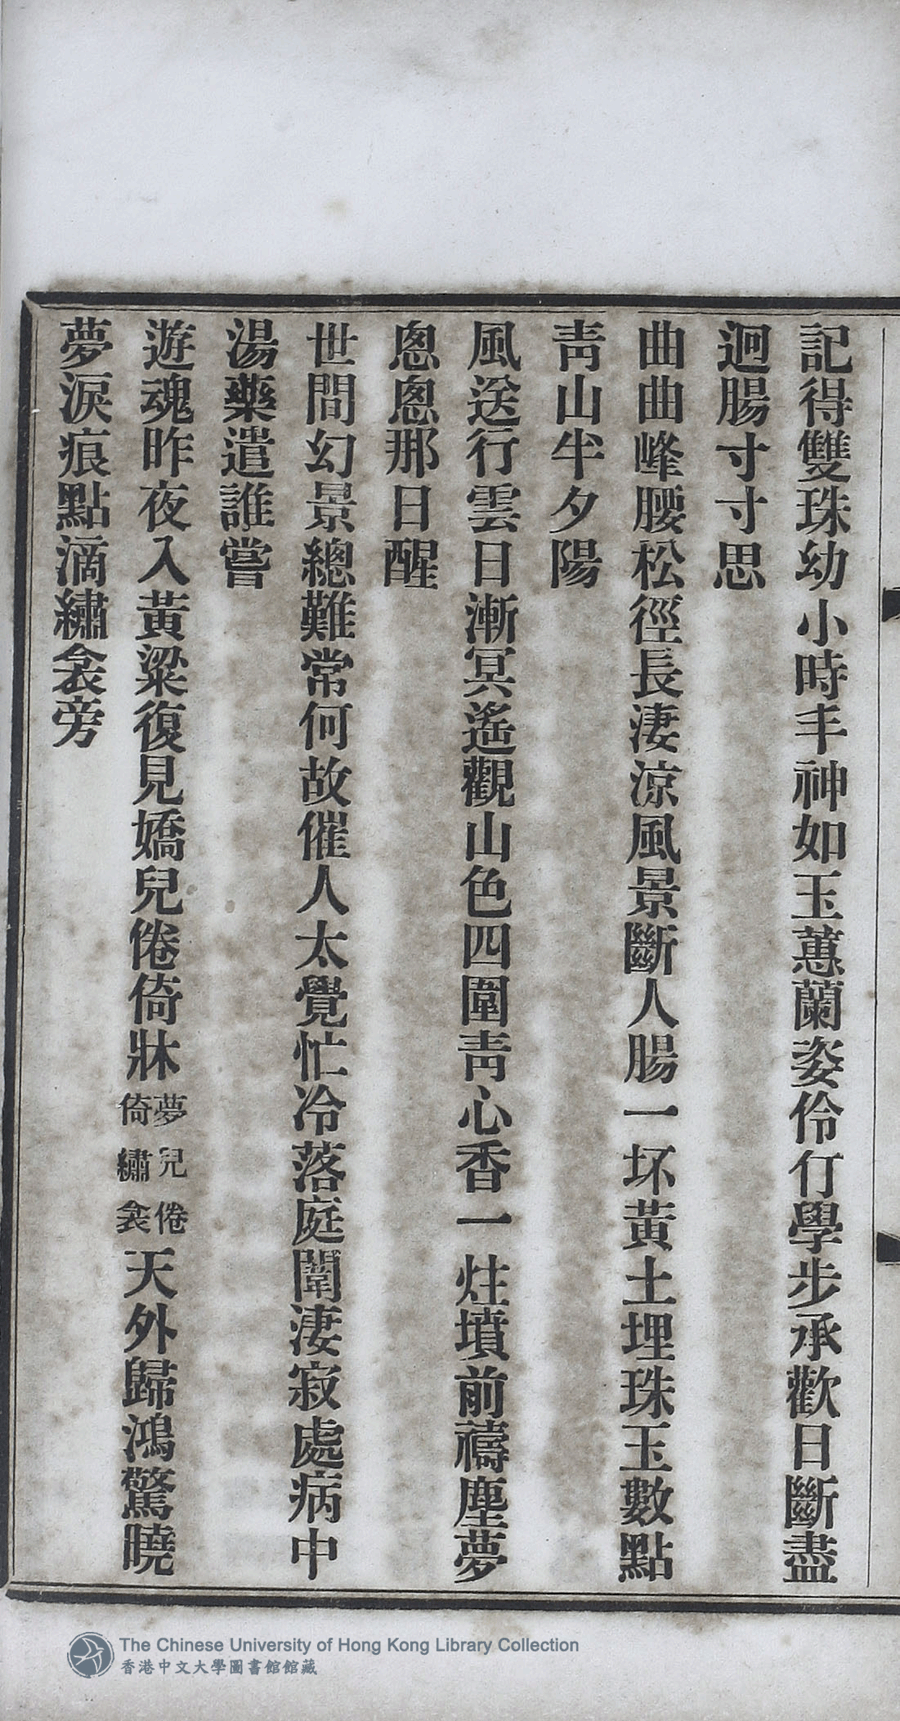 記得雙珠幼小時丰神如玉蕙蘭姿伶仃學步承歡日斷盡
迴腸寸寸思
曲曲峰腰松徑長淒涼風景斷人腸一坏黃土埋珠玉數點
靑山半夕陽
風送行雲日漸冥遙觀山色四圍靑心香一炷墳前禱塵夢
悤悤那日醒
世間幻景總難常何故催人太覺忙冷落庭闈淒寂處病中
湯藥遣誰嘗
遊魂昨夜入黃粱復見嬌兒倦倚牀夢兒倦倚繡衾天外歸鴻驚曉
夢淚痕點滴繡衾旁
The Chinese University of Hong Kong Library Collection
香港中文大學圖書館館藏